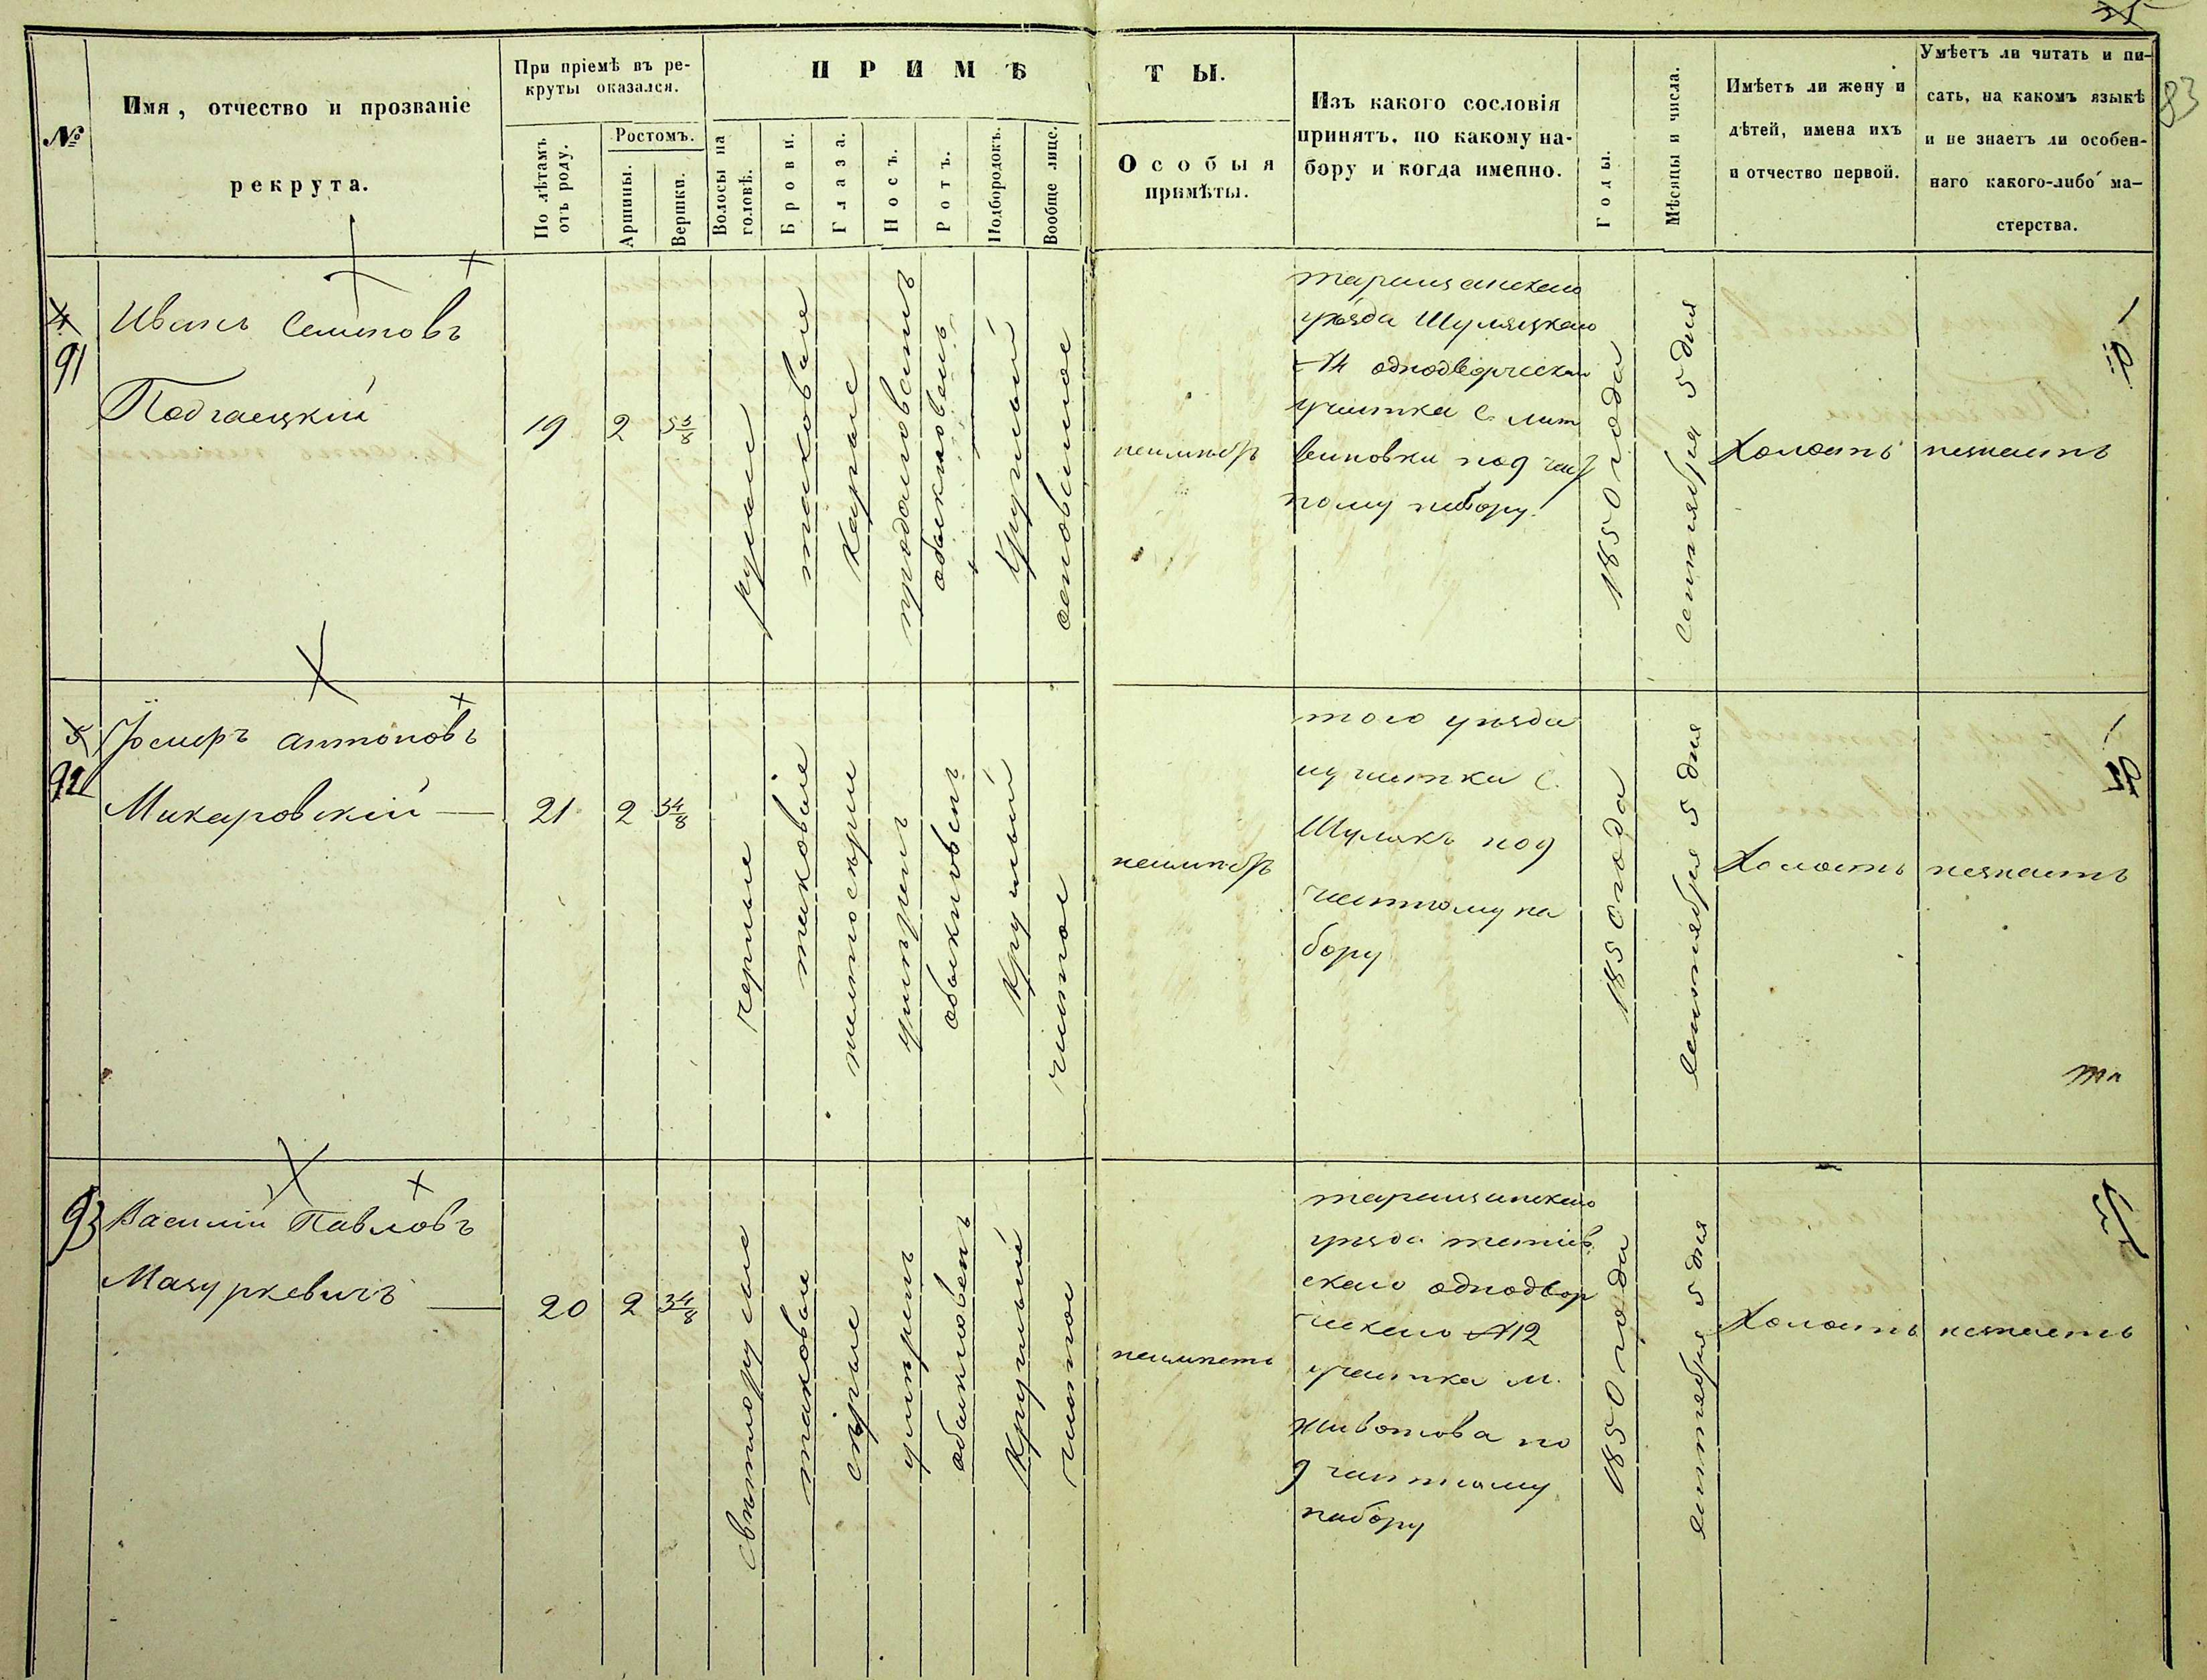 83
№
Имя, отчество и прозваніе
рекрута.
При пріемѣ въ ре-
круты оказался.
По лѣтамъ
отъ роду.
Ростомъ.
Аршины.
Вершки.
ПРИМѢ
ТЫ.
Волосы на
головѣ.
Брови.
Глаза.
Носъ.
Ротъ.
Подбородокъ.
Вообще лице.
Особыя
примѣты.
Изъ какого сословія
принятъ, по какому на-
бору и когда именно.
Годы.
Мѣсяцы и числа.
Имѣетъ ли жену и
дѣтей, имена ихъ
и отчество первой.
Умѣетъ ли читать и пи-
сать, на какомъ языкѣ
и не знаетъ ли особен-
наго какого-либо ма-
стерства.
4
91
Иванъ Семеновъ
Подгаецкій
19
2
3 3/8
русые
таковые
каріе
продолговатъ
обыкновенъ
круглый
таращанскаго
уѣзда Шуляцкаго
№ 4 однодворческаго
участка С. лит
виновки под час
ному набору.
1850 года
Сентября 5 дня
Холостъ
незнаетъ
5
92
Юзефъ Антоновъ
Макаровскій
21
2
3 4/8
черные
таковые
желтосѣрые
умѣренъ
обыкновенъ
круглый
чистое
того уѣзда
и участка С.
Шулякъ под
частному на
бору
1850 года
Сентября 5 дня
Холостъ
незнаетъ
93
Василій Павловъ
Мазуркевичъ
20
2
3 4/8
свѣтлорусые
таковые
сѣрые
умѣренъ
обыкновенъ
круглый
чистое
неимѣетъ
таращанскаго
уѣзда тетіев
скаго однодвор
ческаго № 12
участка м.
животова по
д частному
набору
1850 года
Сентября 5 дня
Холостъ
незнаетъ